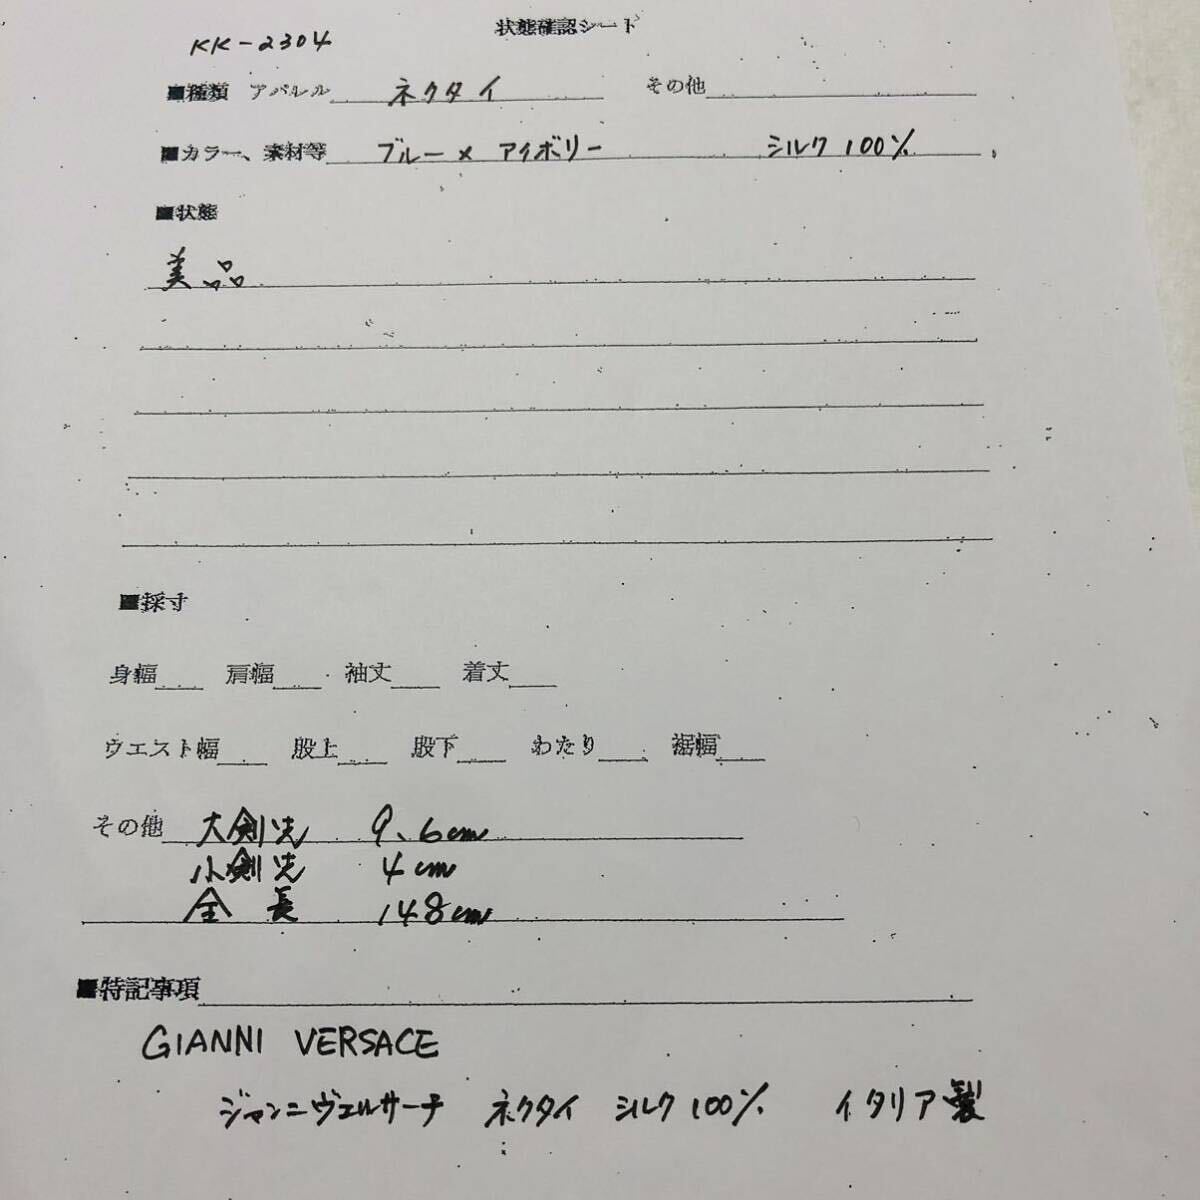 状態確認シート
KK-2304
■種類 アパレル ネクタイ その他
■カラー、素材等 ブルー×アイボリー シルク100%
■状態
美品
■採寸
身幅 肩幅 袖丈 着丈
ウエスト幅 股上 股下 わたり 裾幅
その他 大剣先 9.6cm
小剣先 4cm
全長 148cm
■特記事項
GIANNI VERSACE
ジャンニヴェルサーチ ネクタイ シルク100% イタリア製